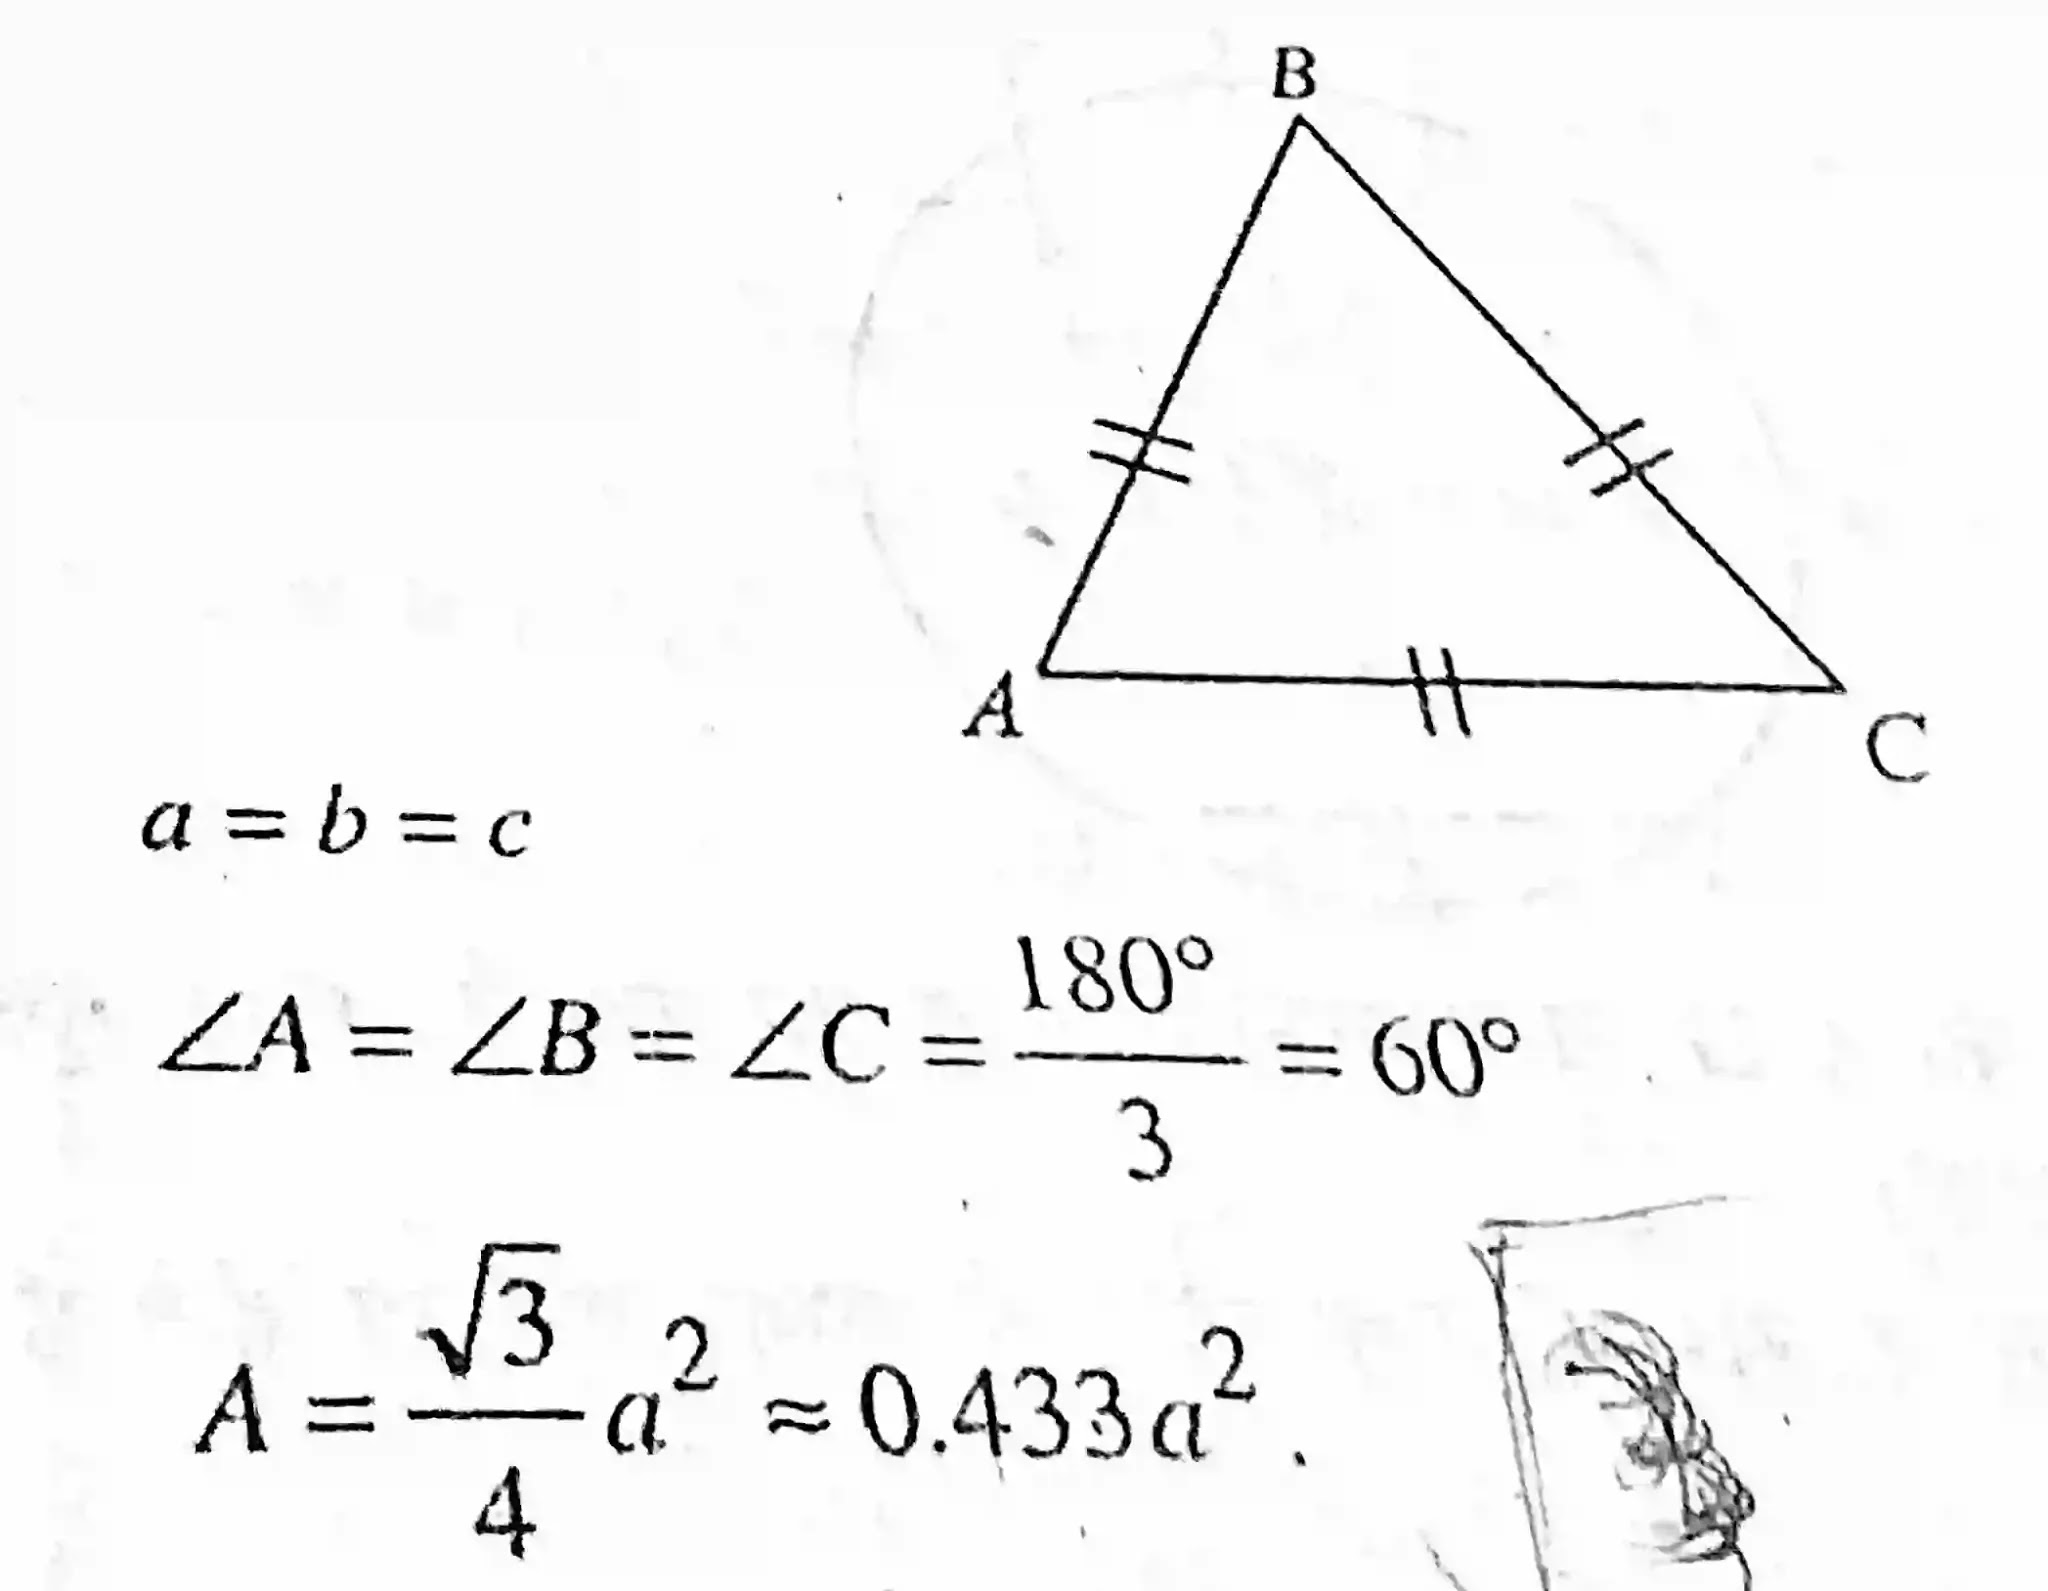 B
A
C
a = b = c
∠A = ∠B = ∠C = 180°/3 = 60°
A = √3/4 a² ≈ 0.433a².